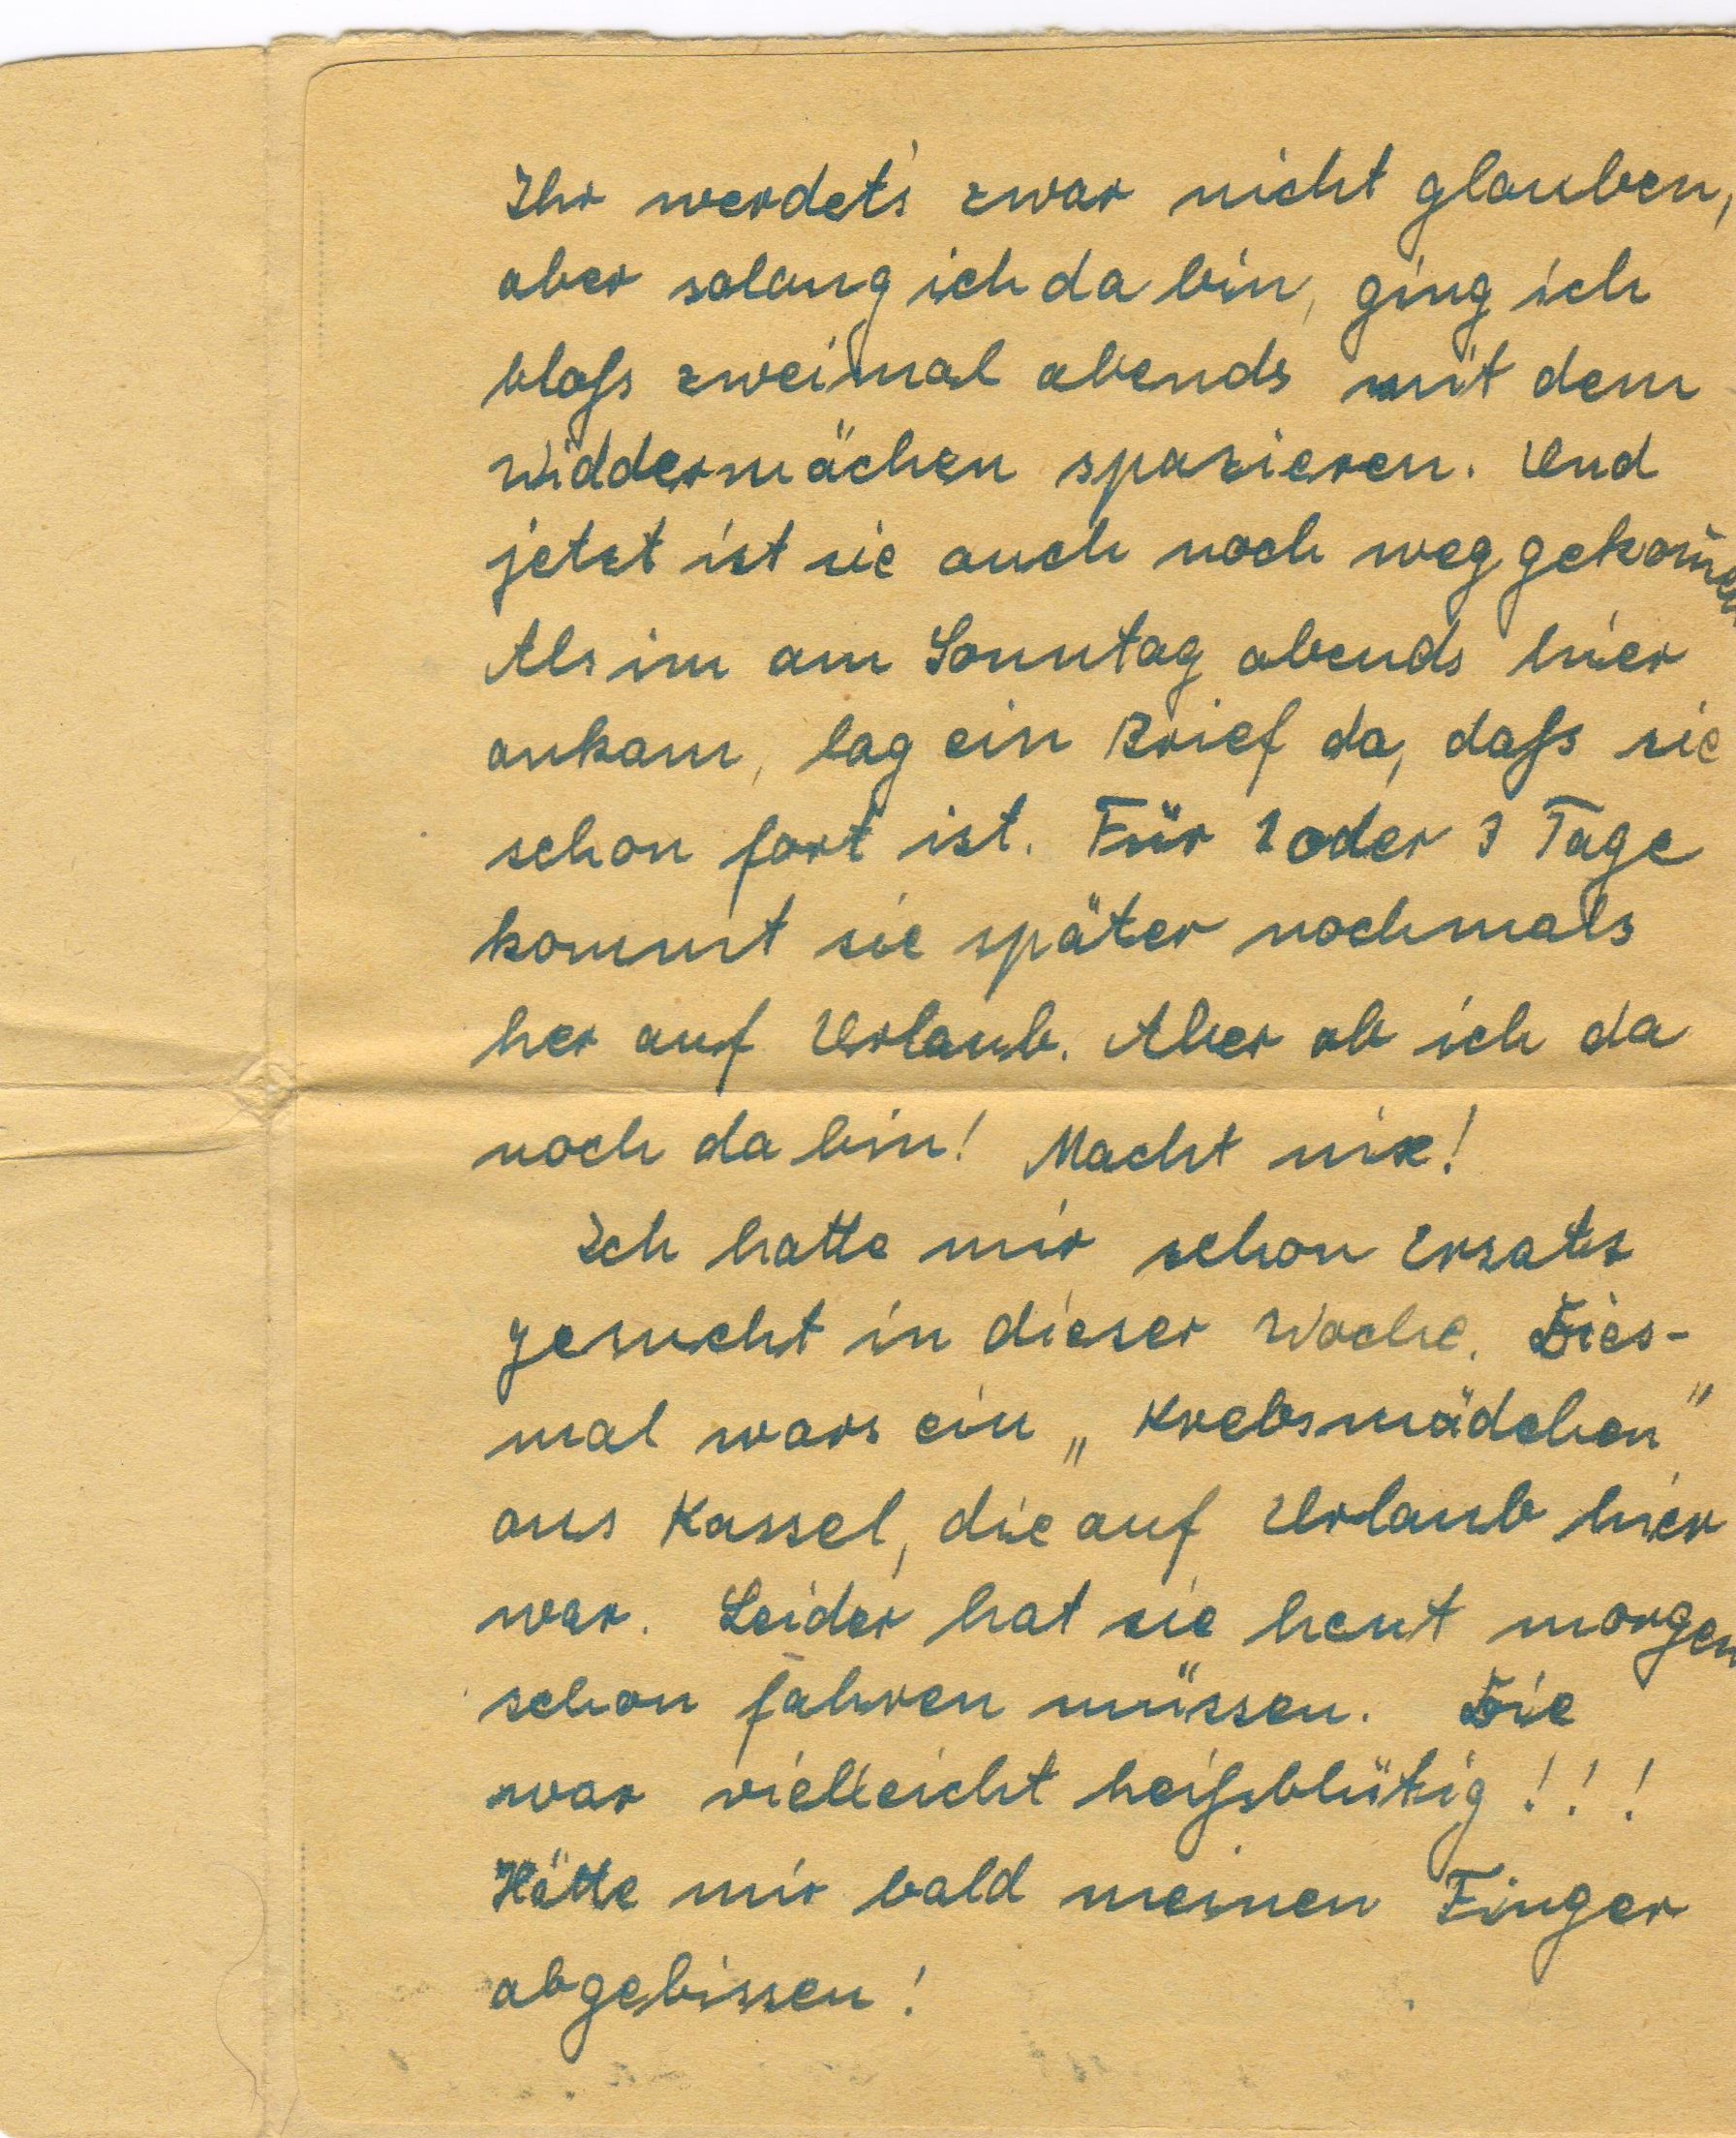 Ihr werdet's zwar nicht glauben,
aber solang ich da bin, ging ich
bloß zweimal abends mit dem
Widdermächen spazieren. Und
jetzt ist sie auch noch weggekom̅en
Als im am Sonntag abends hier
ankam, lag ein Brief da, daß sie
schon fort ist. Für 2 oder 3 Tage
kommt sie später nochmals
her auf Urlaub. Aber ob ich da
noch da bin! Macht nix!
Ich hatte mir schon Ersatz
gesucht in dieser Woche. Dies-
mal wars ein „Krebsmädchen"
aus Kassel, die auf Urlaub hier
war. Leider hat sie heut morgen
schon fahren müssen. Die
war vielleicht heißblütig!!!
Hätte mir bald meinen Finger
abgebissen!